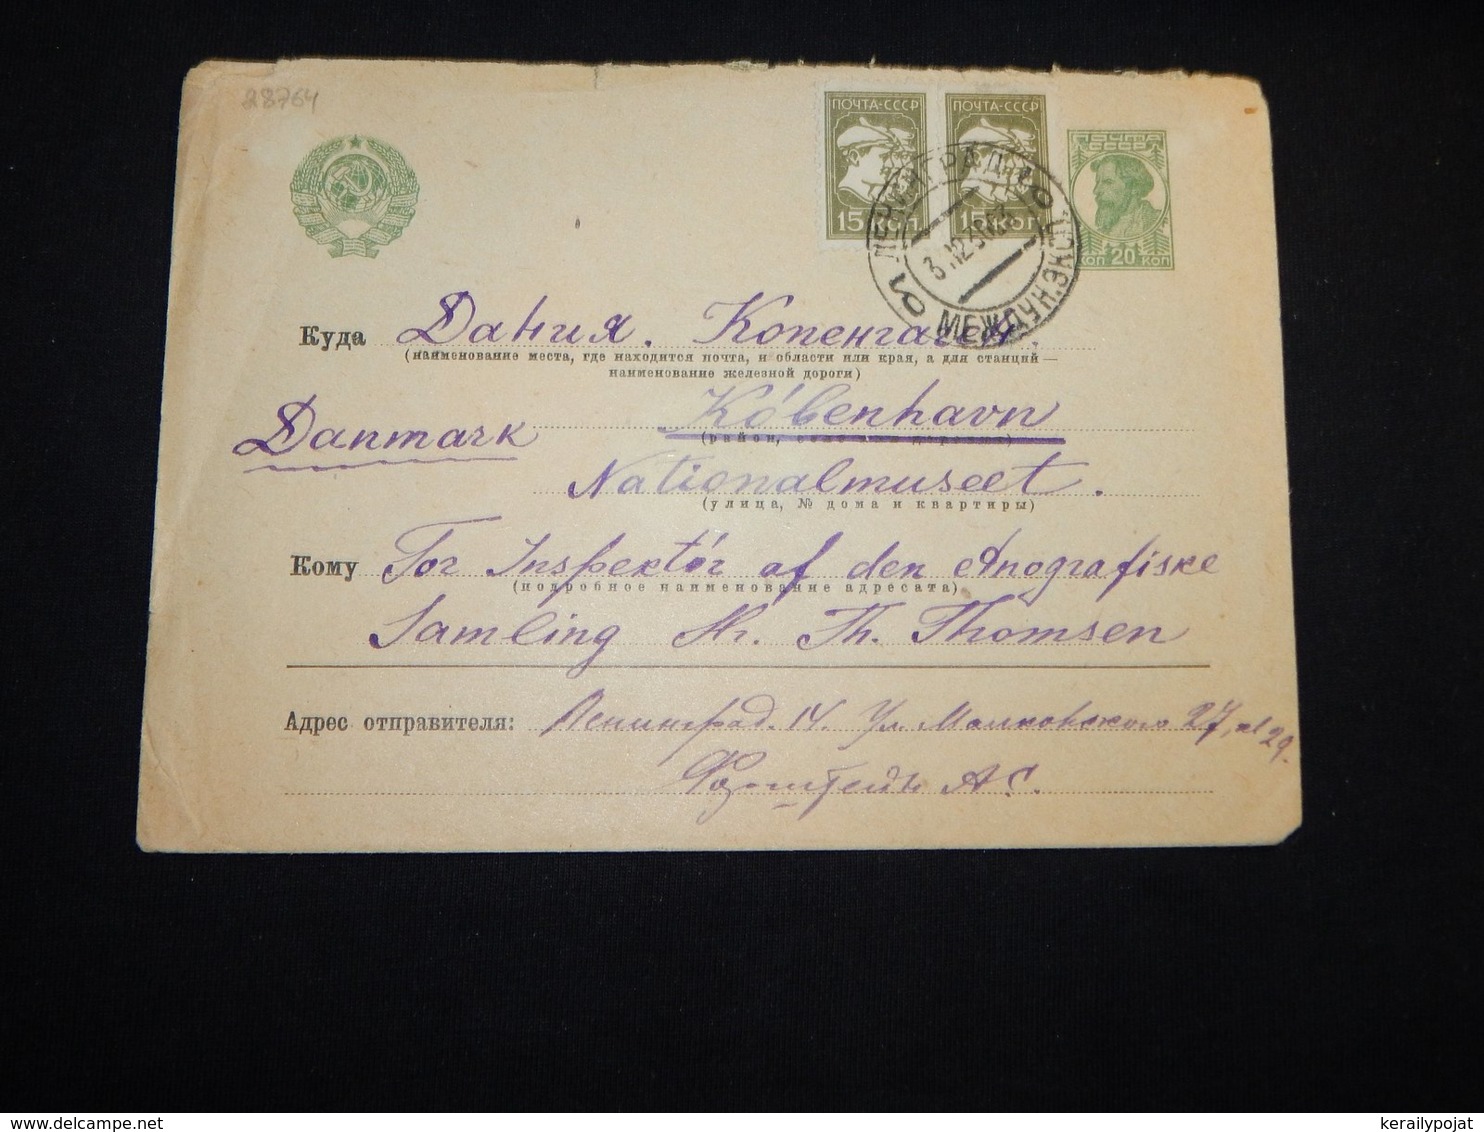 28764
ПОЧТА-СССР ПОЧТА-СССР ПОЧТА СССР
15 КОП. 15 КОП. КОП 20 КОП
ЛЕНИНГРАД
3.12.30
МЕЖДУН.ЭКСП.
Куда Дания. Копенгаген.
(наименование места, где находится почта, и области или края, а для станций —
наименование железной дороги)
Danmark Kóbenhavn
Nationalmuseet.
(улица, № дома и квартиры)
Кому For Inspektór af den Etnografiske
(подробное наименование адресата)
Samling Hr. Th. Thomsen
Адрес отправителя: Ленинград. 14. Ул. Маяковского 27, кв 29.
А. С.
kerailypojat